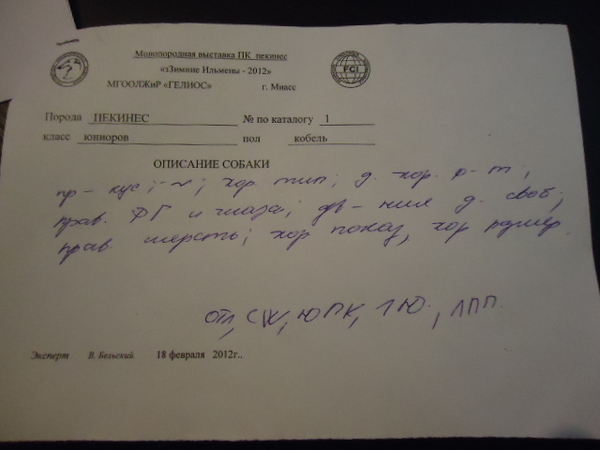 Монопородная выставка ПК пекинес
«зЗимние Ильмены - 2012»
МГООЛЖиР «ГЕЛИОС» г. Миасс
FCI
Порода ПЕКИНЕС № по каталогу 1
класс юниоров пол кобель
ОПИСАНИЕ СОБАКИ
пр-кус; хор. тип; д. хор. р-т;
прав. ФГ и глаза; дв-ния д. своб;
прав. шерсть; хор показ, хор размер.
отл, CW, ЮПК, ЛЮ., ЛПП.
Эксперт В. Бельский. 18 февраля 2012г..